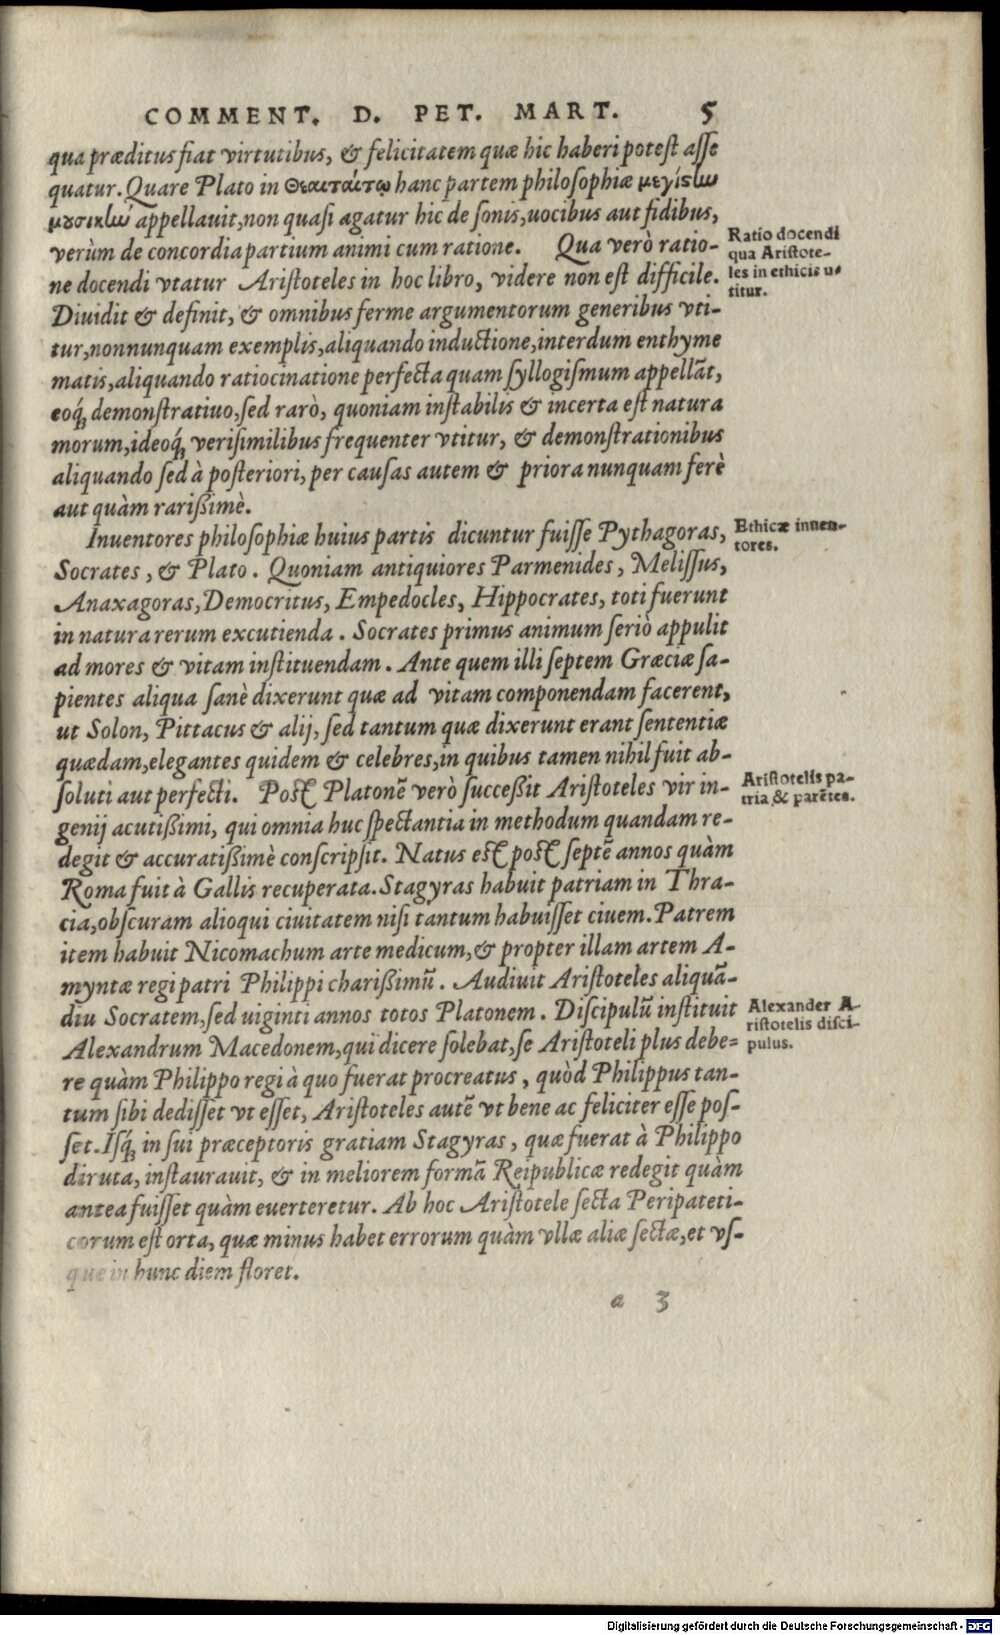 COMMENT. D. PET. MART. 5
qua præditus fiat virtutibus, & felicitatem quæ hic haberi potest asse
quatur. Quare Plato in Θεαιταίτῳ hanc partem philosophiæ μεγίστω
μουσικὼ appellauit, non quasi agatur hic de sonis, uocibus aut fidibus,
verùm de concordia partium animi cum ratione. Qua verò ratio-
ne docendi vtatur Aristoteles in hoc libro, videre non est difficile.
Ratio docendi
qua Aristote-
les in ethicis u-
titur.
Diuidit & definit, & omnibus ferme argumentorum generibus vti-
tur, nonnunquam exemplis, aliquando inductione, interdum enthyme
matis, aliquando ratiocinatione perfecta quam syllogismum appellãt,
eoq́; demonstratiuo, sed rarò, quoniam instabilis & incerta est natura
morum, ideoq́; verisimilibus frequenter vtitur, & demonstrationibus
aliquando sed à posteriori, per causas autem & priora nunquam ferè
aut quàm rarißimè.
Inuentores philosophiæ huius partis dicuntur fuisse Pythagoras,
Ethicæ inuen-
tores.
Socrates, & Plato. Quoniam antiquiores Parmenides, Melissus,
Anaxagoras, Democritus, Empedocles, Hippocrates, toti fuerunt
in natura rerum excutienda. Socrates primus animum seriò appulit
ad mores & vitam instituendam. Ante quem illi septem Græciæ sa-
pientes aliqua sanè dixerunt quæ ad vitam componendam facerent,
ut Solon, Pittacus & alij, sed tantum quæ dixerunt erant sententiæ
quædam, elegantes quidem & celebres, in quibus tamen nihil fuit ab-
soluti aut perfecti. Post Platonẽ verò succeßit Aristoteles vir in-
Aristotelis pa-
tria & parẽtes.
genij acutißimi, qui omnia huc spectantia in methodum quandam re-
degit & accuratißimè conscripsit. Natus est post septẽ annos quàm
Roma fuit à Gallis recuperata. Stagyras habuit patriam in Thra-
cia, obscuram alioqui ciuitatem nisi tantum habuisset ciuem. Patrem
item habuit Nicomachum arte medicum, & propter illam artem A-
myntæ regi patri Philippi charißimũ. Audiuit Aristoteles aliquã-
diu Socratem, sed uiginti annos totos Platonem. Discipulũ instituit
Alexander A-
ristotelis disci-
pulus.
Alexandrum Macedonem, qui dicere solebat, se Aristoteli plus debe=
re quàm Philippo regi à quo fuerat procreatus, quòd Philippus tan-
tum sibi dedisset vt esset, Aristoteles autẽ vt bene ac feliciter esse pos-
set. Isq́; in sui præceptoris gratiam Stagyras, quæ fuerat à Philippo
diruta, instaurauit, & in meliorem formã Reipublicæ redegit quàm
antea fuisset quàm euerteretur. Ab hoc Aristotele secta Peripateti-
corum est orta, quæ minus habet errorum quàm vllæ aliæ sectæ, et vs-
que in hunc diem floret.
a 3
Digitalisierung gefördert durch die Deutsche Forschungsgemeinschaft - DFG